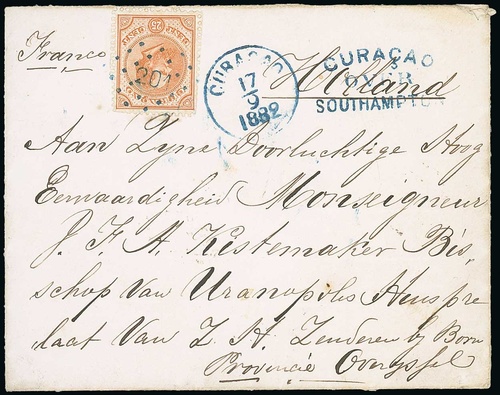 Franco
201
CURAÇAO
17
9
1882
Holland
CURAÇAO
OVER
SOUTHAMPTON
Aan Zyne Doorluchtige Hoog
Eerwaardigheid Monseigneur
J. F. A. Kistemaker Bis,
schop van Uranopolis Huispre
laat van Z. H. Zenderen by Born
Provincie Overyssel